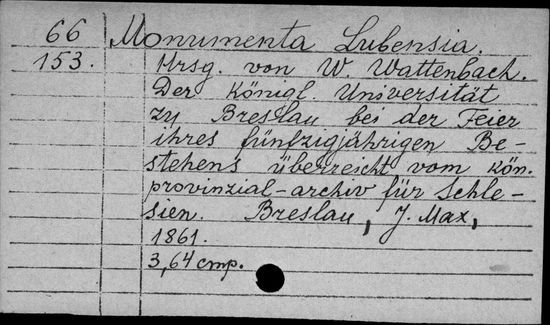 66 Monumenta Lubensia.
153. Hrsg. von W. Wattenbach.
Der Königl. Universität
zu Breslau bei der Feier
ihres fünfzigjährigen Be-
stehens überreicht vom kön.
provinzial-archiv für Schle-
sien. Breslau, J. Max,
1861.
3,64 cmp.